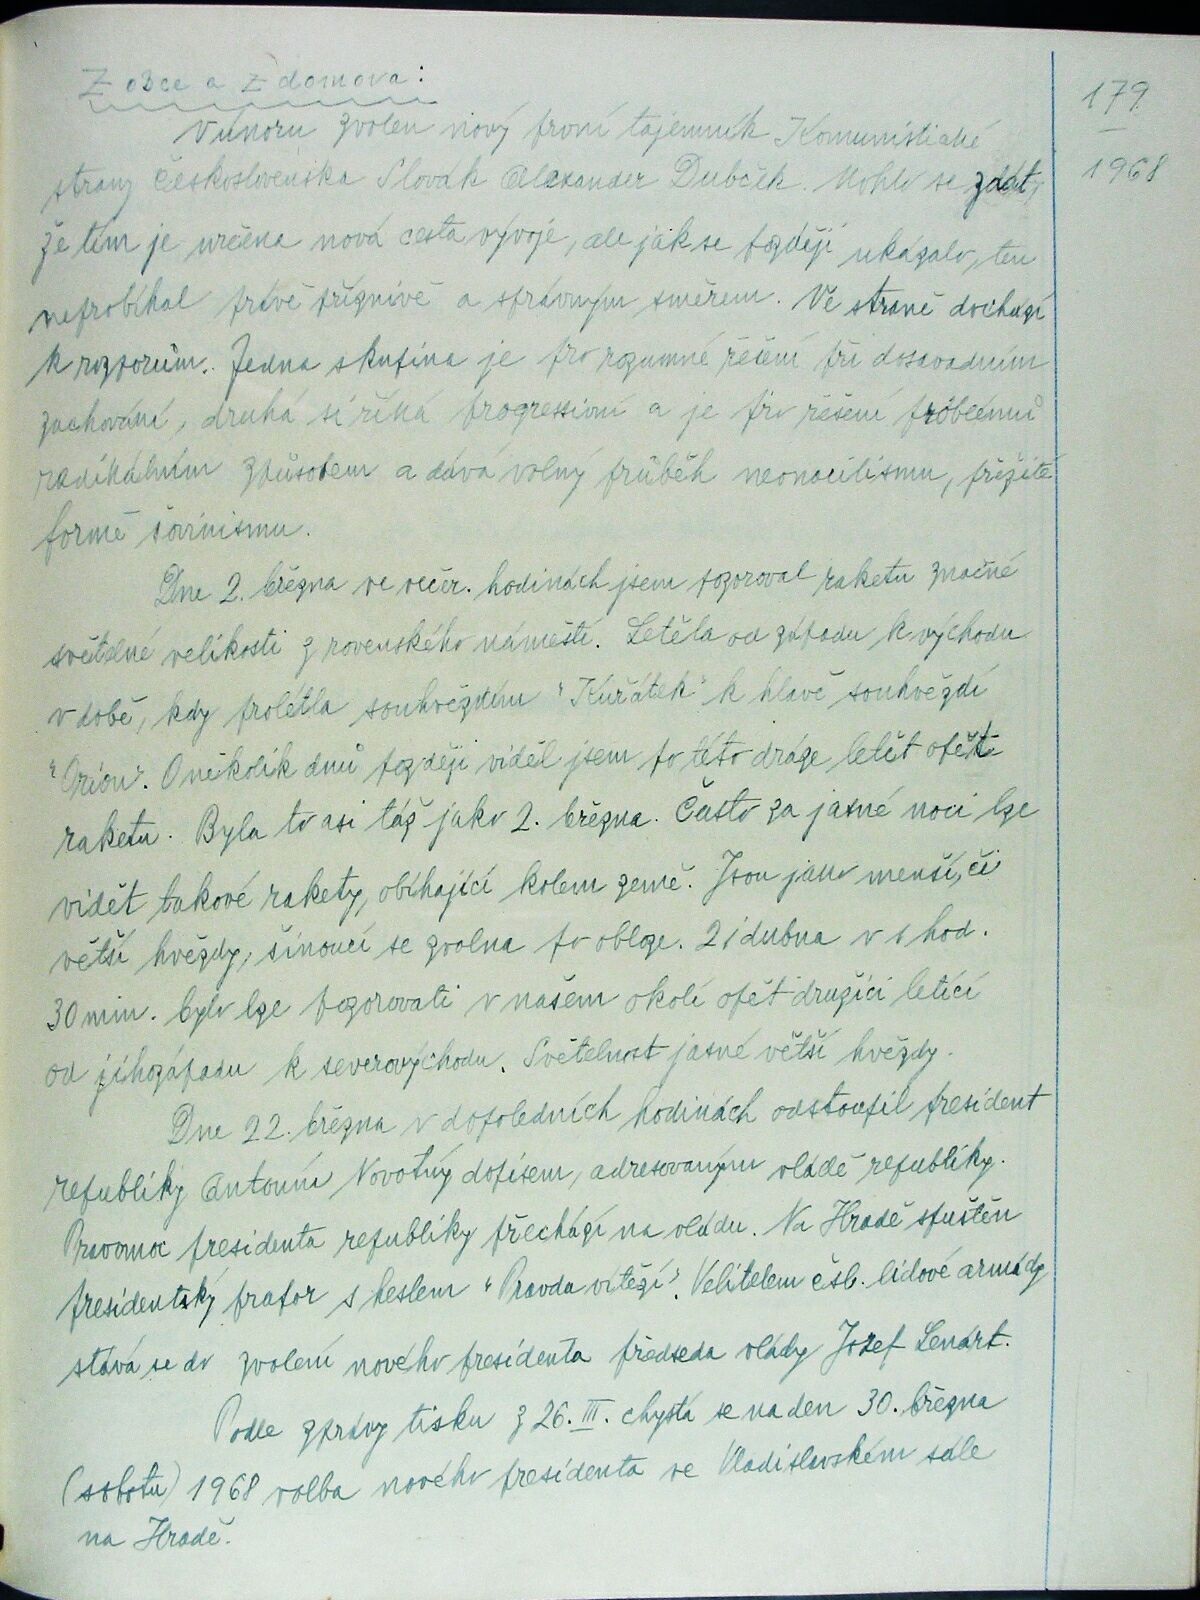 Z obce a z domova:
179
1968
V únoru zvolen nový první tajemník Komunistické
strany Československa Slovák Alexander Dubček. Mohlo se zdát,
že tím je určena nová cesta vývoje, ale jak se později ukázalo, ten
neprobíhal právě příznivě a správným směrem. Ve straně dochází
k rozporům. Jedna skupina je pro rozumné řešení při dosavadním
zachování, druhá si říká progressivní a je pro řešení problémů
radikálním způsobem a dává volný průběh neonacilismu, přežité
formě šovinismu.
Dne 2. března ve večer. hodinách jsem pozoroval raketu značné
světelné velikosti z rovenského náměstí. Letěla od západu k východu
v době, kdy prolétla souhvězdím "Kuřátek" k hlavě souhvězdí
"Orion". O několik dnů později viděl jsem po této dráze letět opět
raketu. Byla to asi táž jako 2. března. Často za jasné noci lze
vidět takové rakety, obíhající kolem země. Jsou jako menší, či
větší hvězdy, šinoucí se zvolna po obloze. 21 dubna v s hod.
30 min. bylo lze pozorovati v našem okolí opět družici letící
od jihozápadu k severovýchodu. Světelnost jasné větší hvězdy.
Dne 22. března v dopoledních hodinách odstoupil president
republiky Antonín Novotný dopisem, adresovaným vládě republiky.
Pravomoc presidenta republiky přechází na vládu. Na Hradě spuštěn
presidentský prapor s heslem "Pravda vítězí". Velitelem čsl. lidové armády
stává se do zvolení nového presidenta předseda vlády Jozef Lenárt.
Podle zprávy tisku z 26. III. chystá se na den 30. března
(sobotu) 1968 volba nového presidenta ve Vladislavském sále
na Hradě.